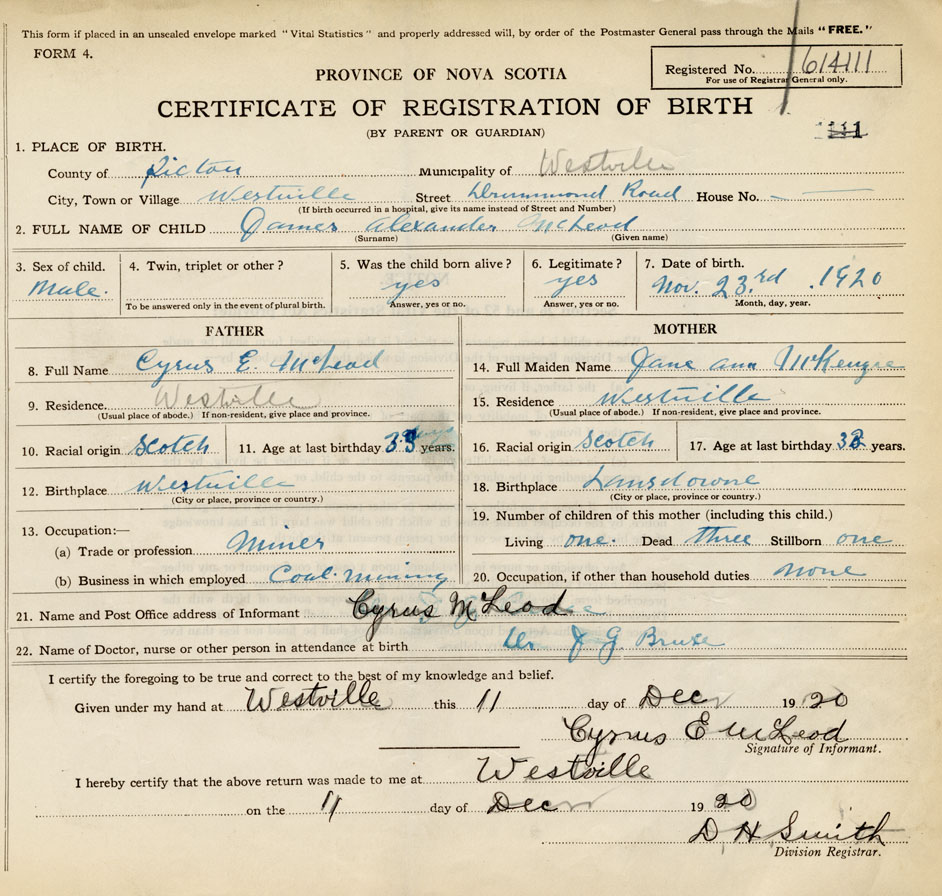 This form if placed in an unsealed envelope marked "Vital Statistics" and properly addressed will, by order of the Postmaster General pass through the Mails "FREE."
FORM 4.
Registered No. 614111
For use of Registrar General only.
PROVINCE OF NOVA SCOTIA
CERTIFICATE OF REGISTRATION OF BIRTH
(BY PARENT OR GUARDIAN)
1. PLACE OF BIRTH.
County of Pictou Municipality of Westville
City, Town or Village Westville Street Drummond Road House No. —
(If birth occurred in a hospital, give its name instead of Street and Number)
2. FULL NAME OF CHILD James Alexander McLeod
(Surname) (Given name)
3. Sex of child. 4. Twin, triplet or other? 5. Was the child born alive? 6. Legitimate? 7. Date of birth.
Male. yes yes Nov. 23rd 1920
To be answered only in the event of plural birth. Answer, yes or no. Answer, yes or no. Month, day, year.
FATHER MOTHER
8. Full Name Cyrus E. McLeod 14. Full Maiden Name Jane ann McKenzie
9. Residence. Westville 15. Residence Westville
(Usual place of abode.) If non-resident, give place and province. (Usual place of abode.) If non-resident, give place and province.
10. Racial origin Scotch 11. Age at last birthday years. 16. Racial origin Scotch 17. Age at last birthday years.
12. Birthplace Westville 18. Birthplace Lansdowne
(City or place, province or country.) (City or place, province or country.)
13. Occupation:— 19. Number of children of this mother (including this child.)
(a) Trade or profession. Miner Living one. Dead three Stillborn one
(b) Business in which employed Coal Mining 20. Occupation, if other than household duties none
21. Name and Post Office address of Informant Cyrus McLeod
22. Name of Doctor, nurse or other person in attendance at birth Dr. J G. Bruce
I certify the foregoing to be true and correct to the best of my knowledge and belief.
Given under my hand at Westville this 11 day of Dec 1920
Cyrus E McLeod
Signature of Informant.
I hereby certify that the above return was made to me at Westville
on the 11 day of Dec 1920
D H Smith
Division Registrar.